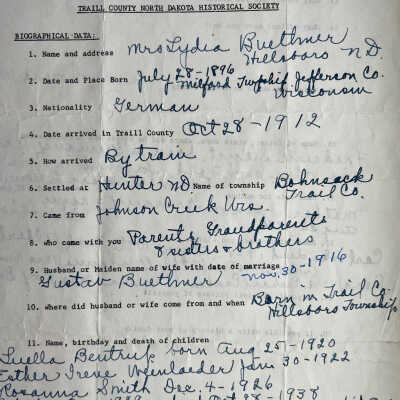 TRAILL COUNTY NORTH DAKOTA HISTORICAL SOCIETY
BIOGRAPHICAL DATA:
1. Name and address Mrs Lydia Buethner Hillsboro N.D.
2. Date and Place Born July 28-1896 Milford Twpship Jefferson Co. Wisconsin
3. Nationality German
4. Date arrived in Traill County Oct 28-1912
5. How arrived By train
6. Settled at Hunter N.D. Name of township Bohnsack Trail Co.
7. Came from Johnson Creek Wis
8. who came with you Parents, Grandparents & sisters & brothers
9. Husband, or Maiden name of wife with date of marriage Nov. 30-1916
Gustav Buethner
10. where did husband or wife come from and when Born in Trail Co. Hillsboro Township
11. Name, birthday and death of children
Luella Bentrup born Aug 25-1920
Esther Irene Weinlaeder Jan 30-1922
Rosanna Smith Dec. 4-1926
28-1938